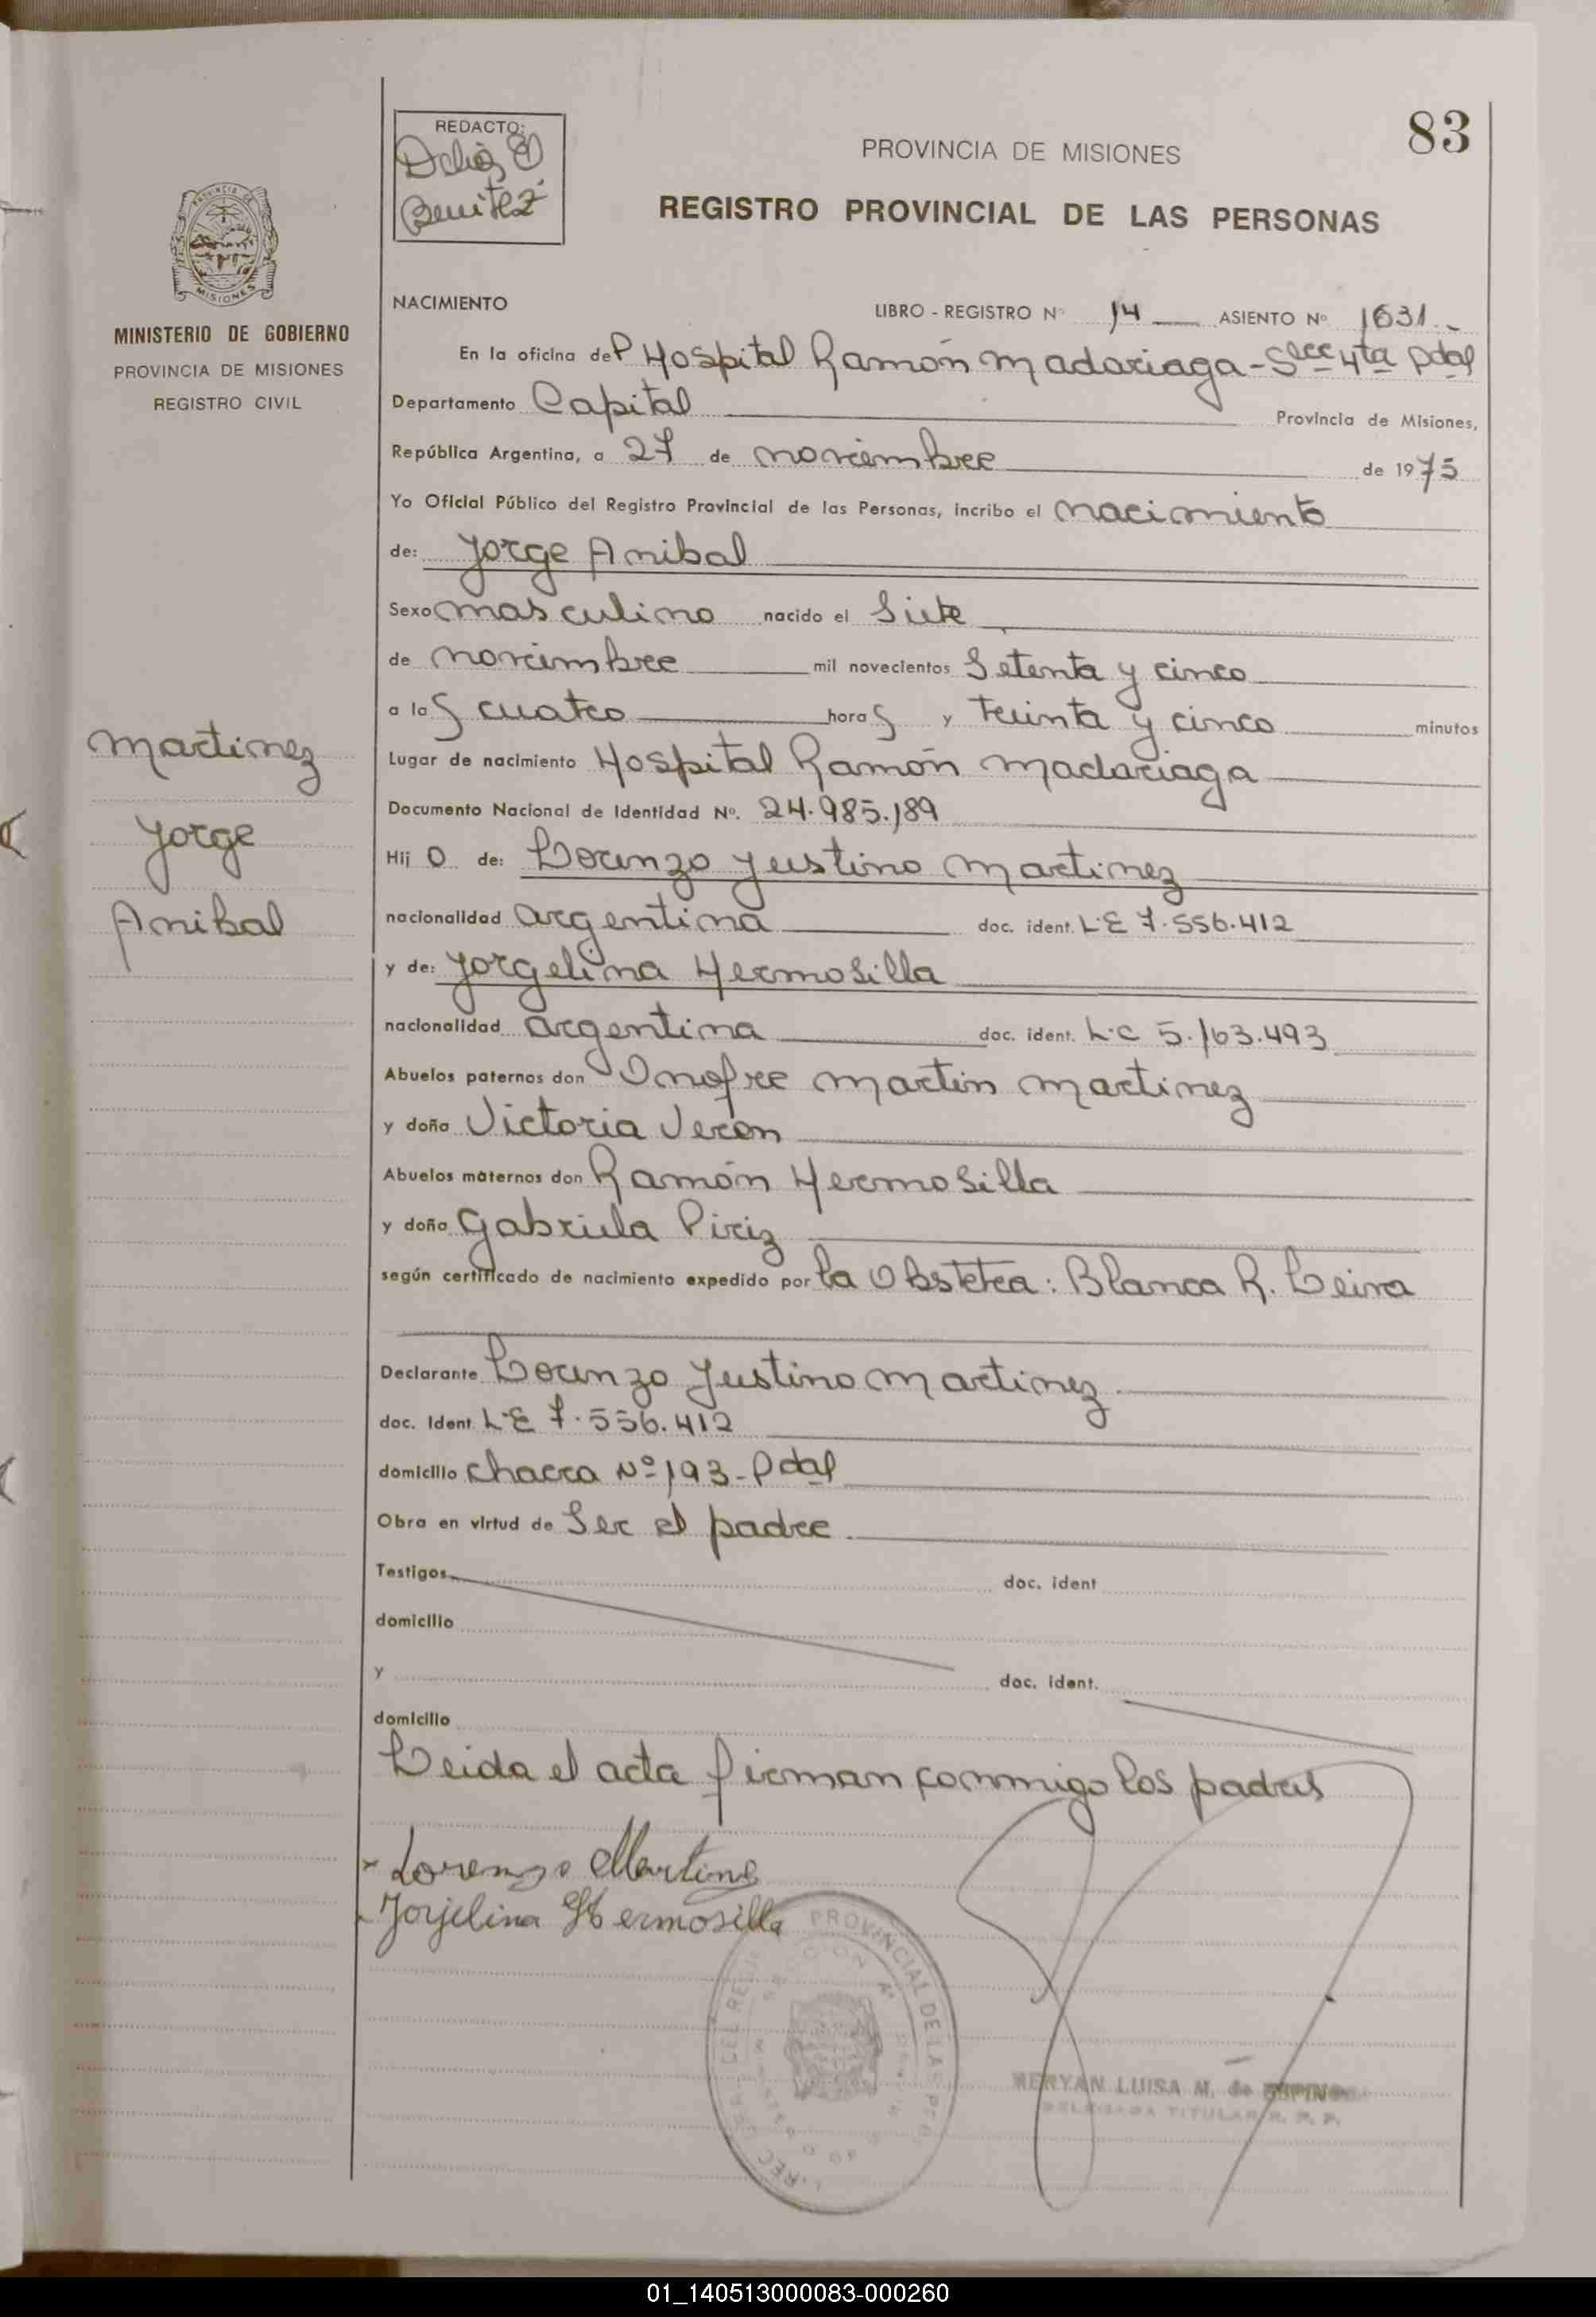 83
REDACTO:
Delia E
Benitez
PROVINCIA DE MISIONES
REGISTRO PROVINCIAL DE LAS PERSONAS
MISIONES
MINISTERIO DE GOBIERNO
PROVINCIA DE MISIONES
REGISTRO CIVIL
Martinez
Jorge
Anibal
NACIMIENTO LIBRO - REGISTRO Nº 14 ASIENTO Nº 1631.-
En la oficina del Hospital Ramón Madariaga - Secc 4ta Pdas
Departamento Capital Provincia de Misiones,
República Argentina, a 27 de noviembre de 1975
Yo Oficial Público del Registro Provincial de las Personas, incribo el nacimiento
de: Jorge Anibal
Sexo masculino nacido el Siete
de noviembre mil novecientos Setenta y cinco
a las cuatro horas y treinta y cinco minutos
Lugar de nacimiento Hospital Ramón Madariaga
Documento Nacional de Identidad Nº. 24.985.189
Hijo de: Lorenzo Justino Martinez
nacionalidad argentina doc. ident. L.E 7.556.412
y de: Jorgelina Hermosilla
nacionalidad argentina doc. ident. L.C 5.163.493
Abuelos paternos don Onofre Martin Martinez
y doña Victoria Veron
Abuelos maternos don Ramón Hermosilla
y doña Gabriela Piriz
según certificado de nacimiento expedido por la Obstetra: Blanca R. Leiva
Declarante Lorenzo Justino Martinez
doc. Ident. L.E 7.556.412
domicilio Chacra Nº 193 - Pdas
Obra en virtud de Ser el padre
Testigos doc. ident
domicilio
y doc. ident.
domicilio
Leida el acta firman conmigo los padres
Lorenzo Martinez
Jorjelina Hermosilla
PROVINCIAL DE LAS PER
MERYAN LUISA M. de ESPINO
DELEGADA TITULAR R. P. P.
01_140513000083-000260